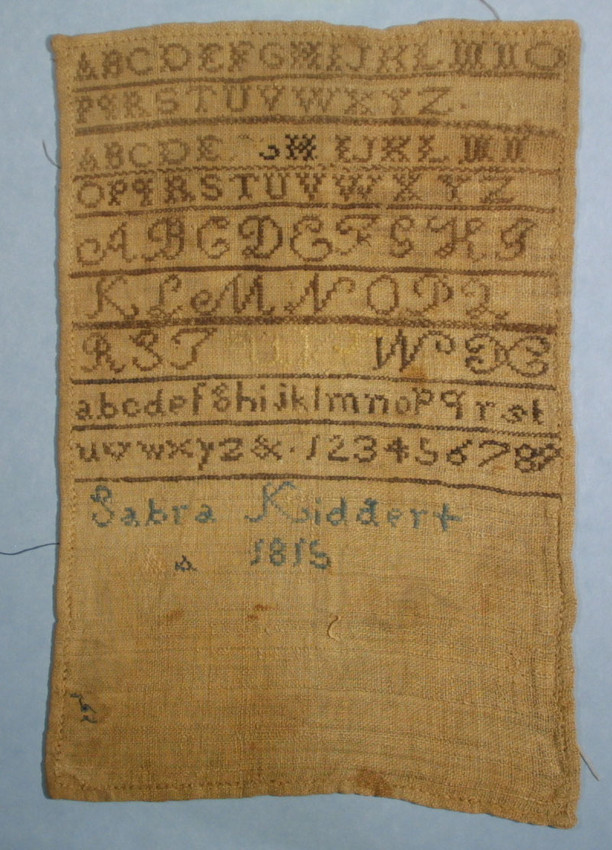 ABCDEFGHIJKLMNO
PQRSTUVWXYZ.
ABCDE H IJKLMN
OPQRSTUVWXYZ
ABCDEFGHI
KLMNOPQ
RST W
abcdefghijklmnopqrst
uvwxyz&.123456789
Sabra Kiddert
1815